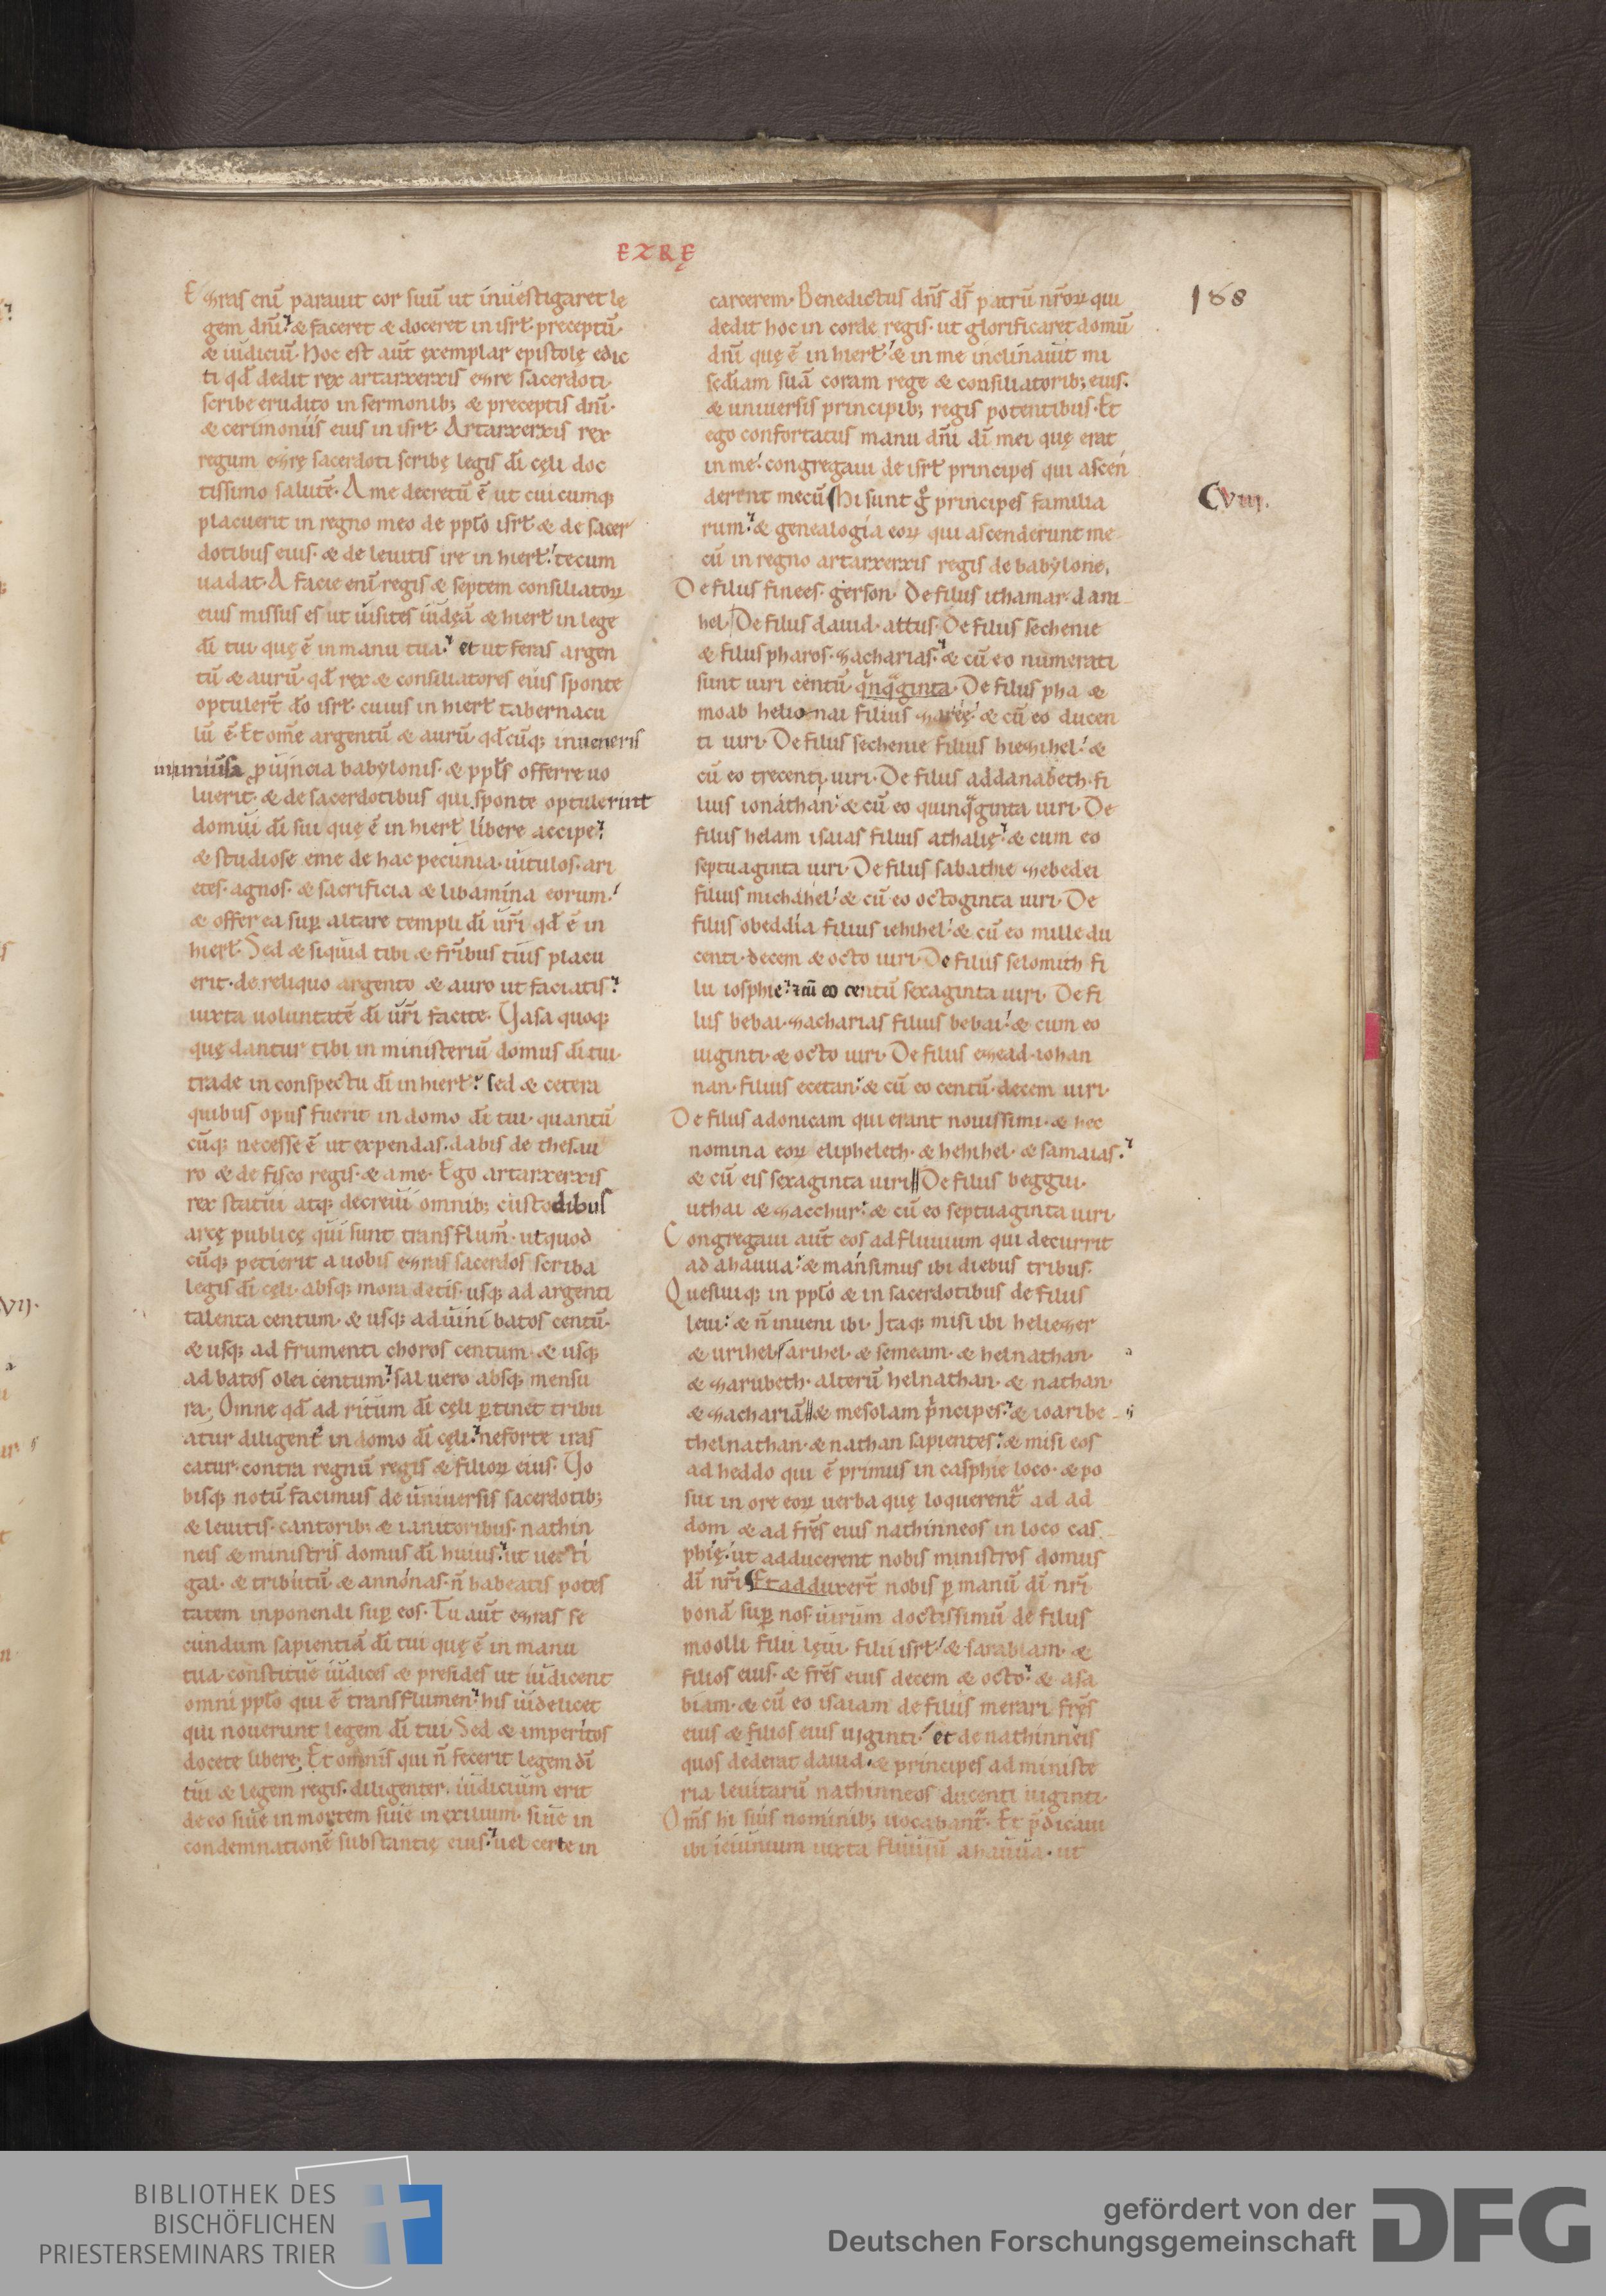 EZRĘ
Esras enī parauit cor suū ut inuestigaret le
gem dn̄i & faceret & doceret in isrł preceptū·
& iudiciū· Hoc est aūt exemplar epistolę edic
ti qd̄ dedit rex artarxerxis esre sacerdoti·
scribe erudito in sermonib; & preceptis dn̄i·
& cerimoniis eius in isrł· Artarxerxis rex
regum esrę sacerdoti scribę legis dī cęli doc
tissimo salutē· A me decretū ē ut cuicumq;
placuerit in regno meo de pplo isrł & de sacer
dotibus eius· & de leuitis ire in hierł· tecum
uadat· A facie enī regis & septem consiliatoꝝ
eius missus es ut uisites iudęā & hierł in lege
dī tui quę ē in manu tua· et ut feras argen
tū & aurū· qd̄ rex & consiliatores eius sponte
optulert̄ dō isrł· cuius in hierł tabernacu
lū ē· Et om̄e argentū & aurū qd̄cūq; inueneris
in uniūsa ꝓuincia babylonis· & ppłs offerre uo
luerit· & de sacerdotibus qui sponte optulerint
domui dī sui quę ē in hierł libere accipe·
& studiose eme de hac pecunia· uitulos· ari
etes· agnos· & sacrificia & libamina eorum·
& offer ea suꝑ altare templi dī ūri qd̄ ē in
hierł· Sed & siquid tibi & fr̄ibus tuis placu
erit· de reliquo argento & auro ut faciatis·
iuxta uoluntatē dī ūri facite· Uasa quoq;
quę dantur tibi in ministeriū domus dī tui·
trade in conspectu dī in hierł· sed & cetera
quibus opus fuerit in domo dī tui· quantū
cūq; necesse ē ut expendas· dabis de thesau
ro & de fisco regis· & a me· Ego artarxerxis
rex statui atq; decreui omnib; custodibus
arcę publicę qui sunt trans flum̄· ut quod
cūq; petierit a uobis esras sacerdos scriba
legis dī cęli· absq; mora detis· usq; ad argenti
talenta centum· & usq; ad uini batos centū·
& usq; ad frumenti choros centum· & usq;
ad batos olei centum· sal uero absq; mensu
ra· Omne qd̄ ad ritum dī cęli ꝑtinet tribu
atur diligent̄ in domo dī cęli· neforte iras
catur· contra regnū regis & filioꝝ eius· Uo
bisq; notū facimus de uniuersis sacerdotib;
& leuitis· cantorib; & ianitoribus· nathin
neis & ministris domus dī huius· ut uecti
gal· & tributū· & annonas· n̄ habeatis potes
tatem inponendi suꝑ eos· Tu aūt esras se
cundum sapientiā dī tui quę ē in manu
tua· constitue iudices & presides ut iudicent
omni pplo qui ē trans flumen· his uidelicet
qui nouerunt legem dī tui· Sed & imperitos
docete libere· Et omnis qui n̄ fecerit legem dī
tui & legem regis· diligenter· iudicium erit
de eo siue in mortem siue in exilium· siue in
condemnationē substantię eius· uel certe in
carcerem· Benedictus dn̄s ds̄ patrū nr̄oꝝ qui
dedit hoc in corde regis· ut glorificaret domū
dn̄i quę ē in hierł· & in me inclinauit mi
sc̄diam suā coram rege & consiliatorib; eius·
& uniuersis principib; regis potentibus· Et
ego confortatus manu dn̄i dī mei quę erat
in me· congregaui de isrł principes qui ascen
derent mecū Hi sunt g̊ principes familia
rum· & genealogia eoꝝ qui ascenderunt me
cū in regno artarxerxis regis de babylone·
De filiis finees· gerson· De filiis ithamar· dani
hel· De filiis dauid· attus· De filiis sechenie
& filiis pharos· zacharias· & cū eo numerati
sunt uiri centū qnqginta· De filiis pha &
moab helioenai filius zareę· & cū eo ducen
ti uiri· De filiis sechenie filius hiezihel· &
cū eo trecenti uiri· De filiis addanabeth· fi
lius ionathan· & cū eo quinqginta uiri· De
filiis helam isaias filius athalię· & cum eo
septuaginta uiri· De filiis sabathie zebedei
filius michahel· & cū eo octoginta uiri· De
filiis obeddia filius iehihel· & cū eo mille du
centi· decem & octo uiri· De filiis selomith fi
lii iosphie· & cū eo centū sexaginta uiri· De fi
liis bebai· zacharias filius bebai· & cum eo
uiginti & octo uiri· De filiis ezead· iohan
nan· filius ecetan· & cū eo centū· decem uiri·
De filiis adonicam qui erant nouissimi· & hec
nomina eoꝝ eliphelech· & hehihel· & samaias·
& cū eis sexaginta uiri De filiis beggui·
uthai & zacchur· & cū eo septuaginta uiri·
Congregaui aūt eos ad fluuium qui decurrit
ad ahauua· & mansimus ibi diebus tribus·
Quesiuiq; in pplo & in sacerdotibus de filiis
leui· & n̄ inueni ibi· Itaq; misi ibi heliezer
& urihel arihel· & semeam· & helnathan·
& zarubeth· alterū helnathan· & nathan·
& zachariā & mesolam pncipes· & ioaribe
thelnathan· & nathan sapientes· & misi eos
ad heddo qui ē primus in casphie loco· & po
sui in ore eoꝝ uerba quę loquerent̄ ad ad
dom & ad fr̄es eius nathinneos in loco cas
phię· ut adducerent nobis ministros domus
dī nr̄i Et adduxert̄ nobis ꝑ manū dī nr̄i
bonā suꝑ nos· uirum doctissimū de filiis
moolli filii lęui· filii isrł· & sarabiam· &
filios eius· & fr̄es eius decem & octo· & asa
biam· & cū eo isaiam de filiis merari fr̄es
eius & filios eius uiginti· et de nathinneis
quos dederat dauid· & principes ad ministe
ria leuitarū nathinneos ducenti uiginti·
Om̄s hi suis nominib; uocabant̄· Et p̄dicaui
ibi ieiunium iuxta fluuiū ahauua· ut
188
Cviii.
VIJ·
BIBLIOTHEK DES
BISCHÖFLICHEN
PRIESTERSEMINARS TRIER
gefördert von der
Deutschen Forschungsgemeinschaft
DFG